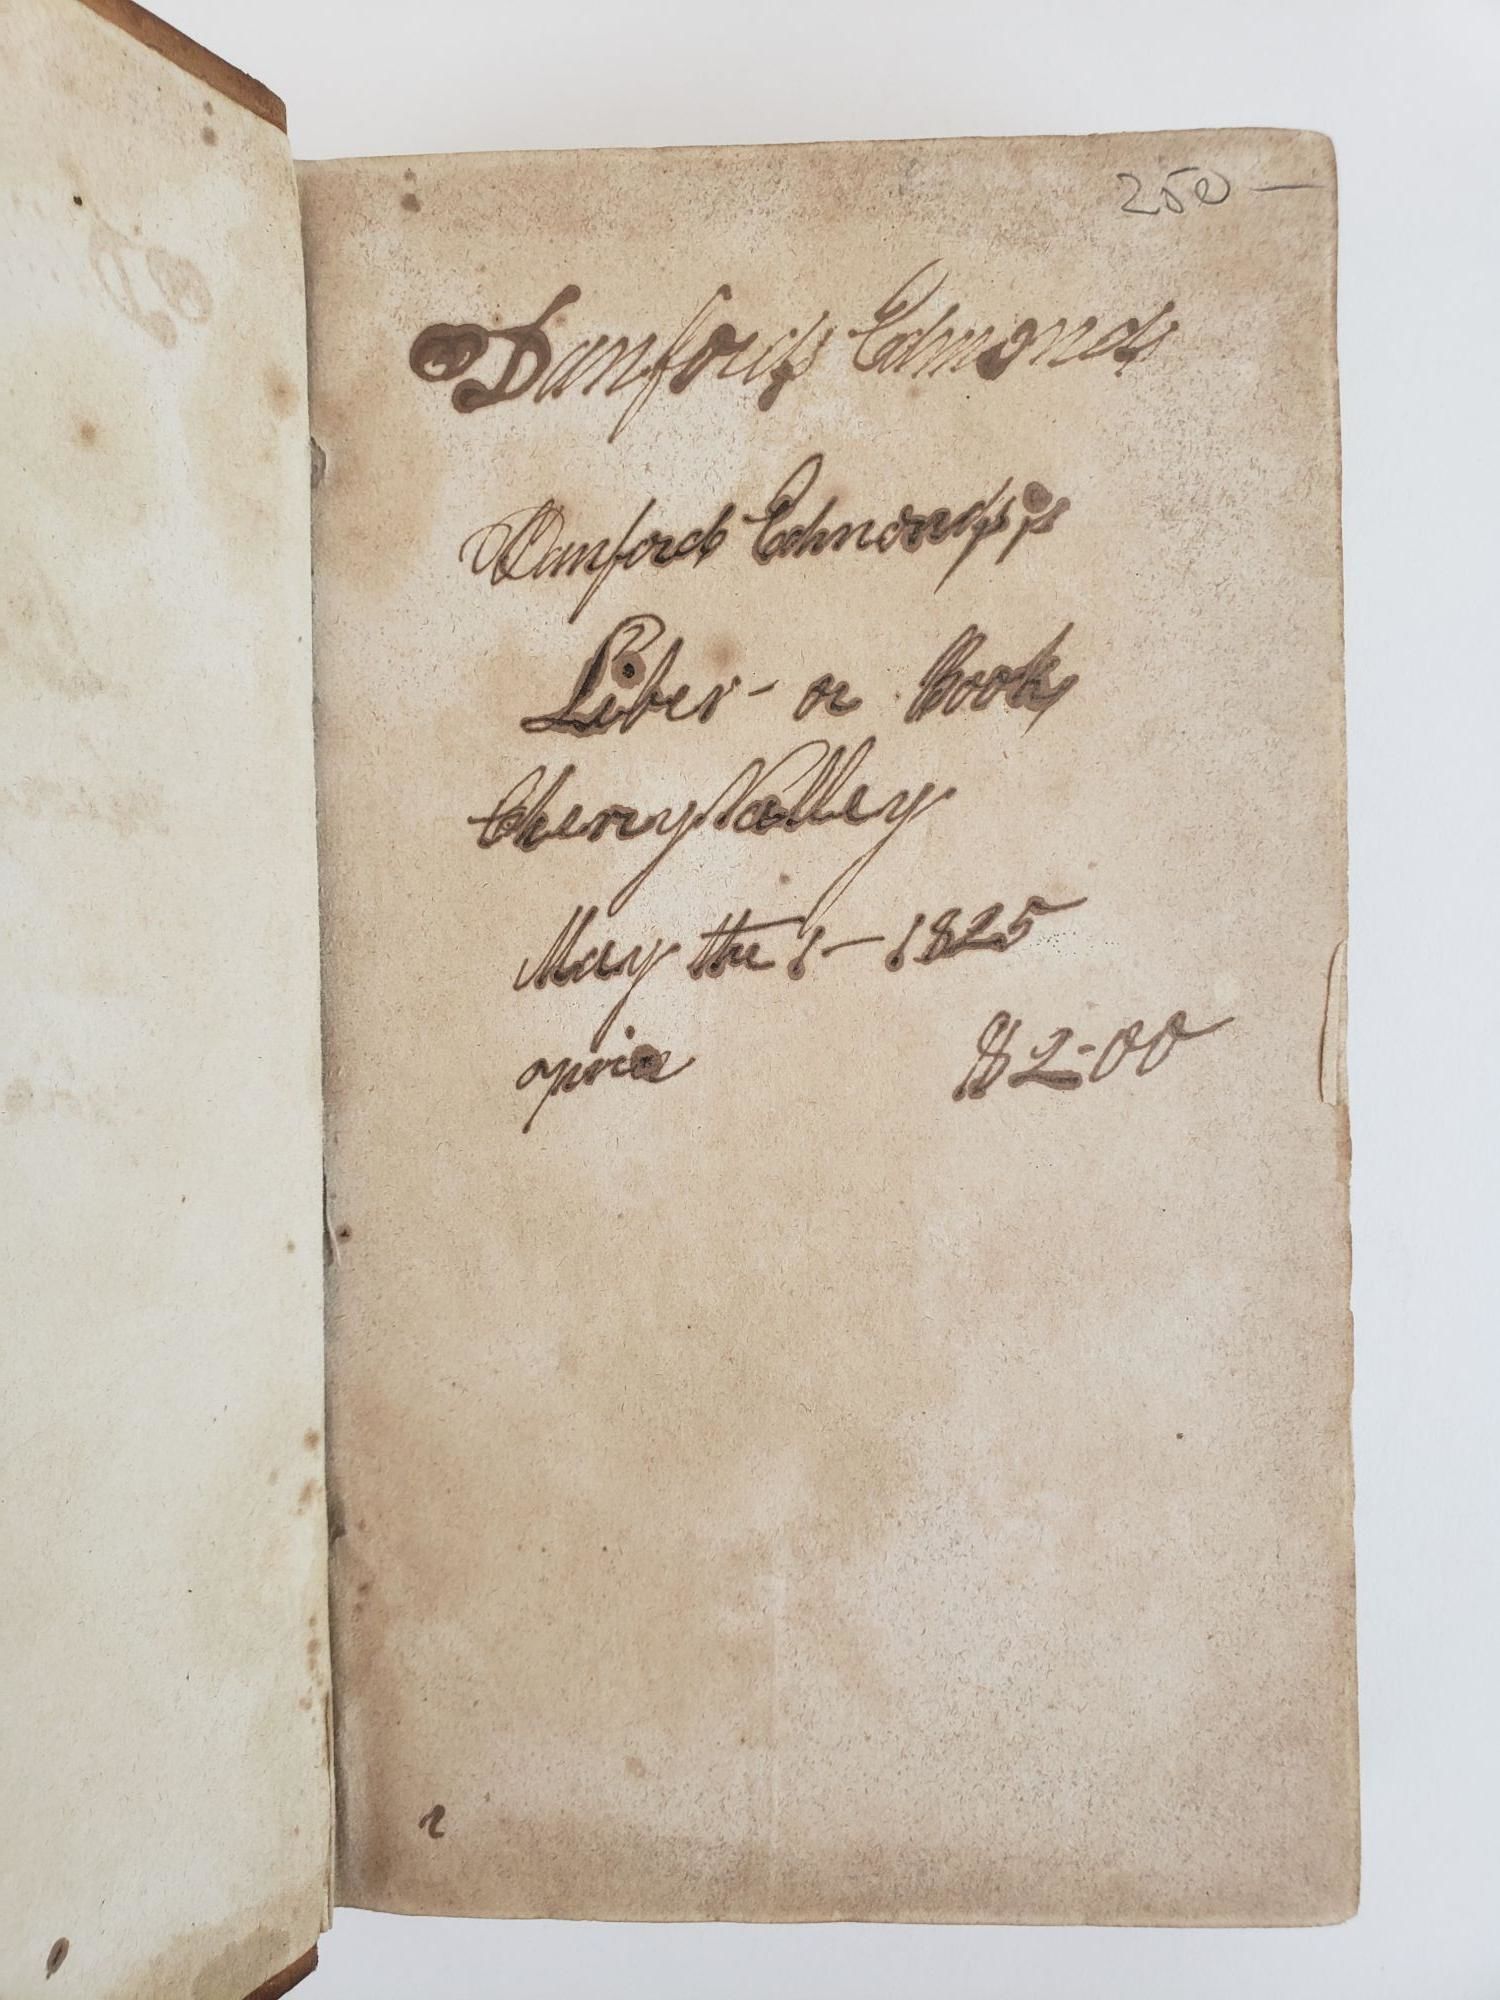 250 —
Danfords Edmonds
Danford Edmonds's
Liber - or Book
Cherry Valley
May the 1 - 1825
price $2-00